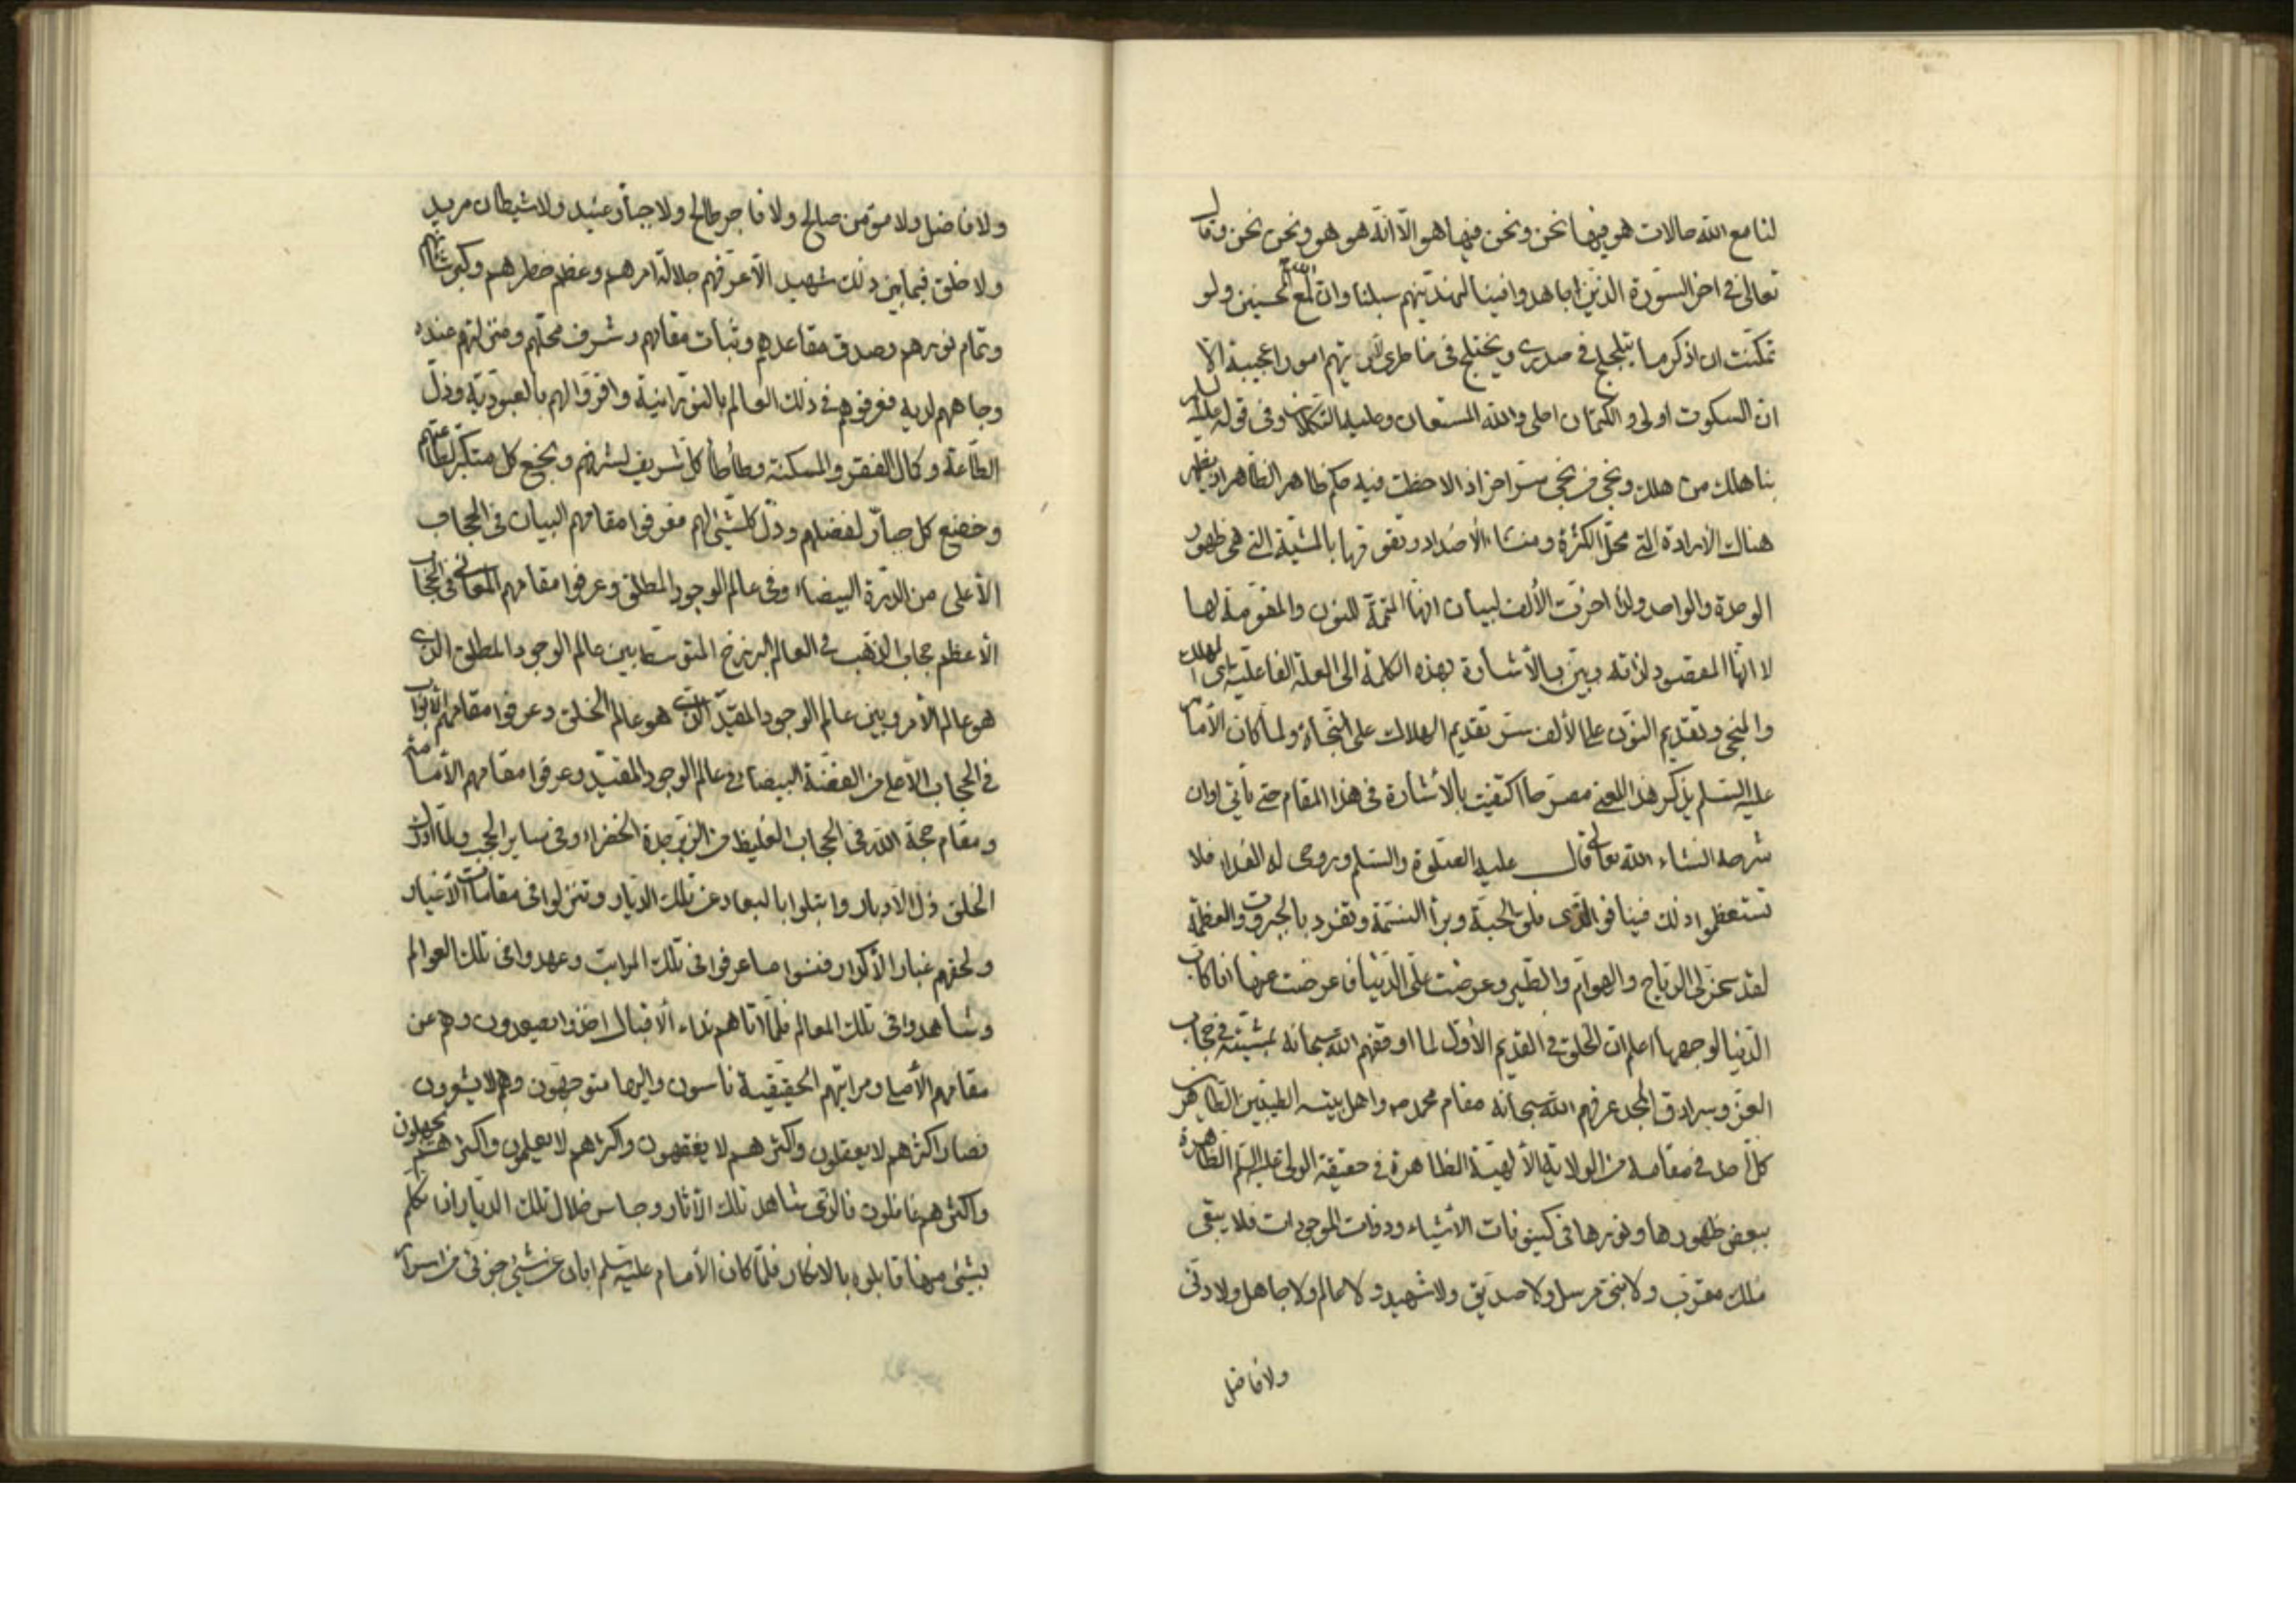 لنا مع الله حالات هو فيها نحن ونحن فيها هو الّا انّه هو هو ونحن نحن وقال
تعالى في اخر السّورة الذين جاهدوا فينا لنهدينّهم سبلنا وان الله لمع المحسنين ولو
تمكّنت ان اذكر ما يتلجلج في صدري ويختلج في خاطري امورا عجيبة الا
ان السكوت اولى والكتمان احلى والله المستعان وعليه التكلان وفي قوله عليه السلام
بنا هلك من هلك ونجى من نجى سرّ اخر اذ الاحظت فيه حكم ظاهر الظاهر اذ يظهر
هناك الارادة التي محلّ الكثرة ومنشاء الأضداد وتقوّمها بالمشيّة التي هي ظهور
الوحدة والواحد ولذا اخرّت الألف لبيان انّها المتمّة للنون والمقوّمة لها
لا انّها المقصود لذاته وبيّن بالأشارة بهذه الكلمة الى العلة الفاعليّة اي المهلك
والمنجي وتقديم النّون على الألف سرّ تقديم الهلاك على النجاة ولما كان الأمام
عليه السّلم يذكر هذا المعنى مصرّحا اكتفيت بالأشارة في هذا المقام حتى يأتي اوان
شرحه انشاء الله تعالى قال عليه الصّلوة والسّلم وروحي له الفداء فلا
تستعظموا ذلك فينا فوالّذي فلق الحبّة وبرأ النسمة وتفرد بالجبروت والعظمة
لقد سخّر لي الرّياح والهوام والطّير وعرضت علّي الدّنيا فاعرضت عنها انا كابّ
الدّنيا لوجهها اعلم ان الخلق في القديم الأوّل لما اوقفهم الله سبحانه بمشيّته في حجاب
العزّ وسرادق المجد عرفهم الله سبحانه مقام محمد ص واهل بيته الطيّبين الطّاهرين
كلّ احد في مقامه من الولاية الألهيّة الظاهرة في حقيقة الولي عليه السّلم الظاهرة
ببعض ظهورها ونورها في كينونات الأشياء وذوات الموجودات فلا يبقى
ملك مقرّب ولا نبي مرسل ولا صدّيق ولا شهيد ولا عالم ولا جاهل ولا دنّي
ولا فاضل
ولا فاضل ولا مؤمن صالح ولا فاجر طالح ولا جبّار عنيد ولا شيطان مريد
ولا خلق فيما بين ذلك شهيد الّا عرّفهم جلالة امرهم وعظم خطرهم وكبر شأنهم
وتمام نورهم وصدق مقاعدهم وثبات مقامهم وشرف محلّهم ومنزلتهم عنده
وجاههم لديه فعرفوهم في ذلك العالم بالنورانية واقرّوا لهم بالعبوديّة وذلّ
الطّاعة وكمال الفقر والمسكنة وطأطأ كلّ شريف لشرفهم وبخع كل متكبّر لطاعتهم
وخضع كل جبّار لفضلهم وذلّ كلّشيء لهم فعرفوا مقامهم البيان في الحجاب
الأعلى من الدرّة البيضاء وفي عالم الوجود المطلق وعرفوا مقامهم المعاني في الحجاب
الأعظم حجاب الذّهب في العالم البرزخ المتوسّط بين عالم الوجود المطلق الذي
هو عالم الأمر وبين عالم الوجود المقيّد الّذي هو عالم الخلق وعرفوا مقامهم الأبواب
في الحجاب الأعلى من الفضّة البيضاء في عالم الوجود المقيّد وعرفوا مقامهم الأمامة
ومقام حجة الله في الحجاب الغليظ من الزبرجدة الخضراء وفي ساير الحجب ولمّا
الخلق ذلّ الأدبار وابتلوا بالبعاد عن تلك الدّيار وتنزلوا في مقامات الأغيار
ولحقهم غبار الأكوار فنسوا ما عرفوا في تلك المراتب وعهدوا في تلك العوالم
وشاهدوا في تلك المعالم فلمّا اتاهم نداء الأقبال اخذوا يصعدون وهم عن
مقامهم الأصلي ومراتبهم الحقيقية ناسون واليها متوجّهون وهم لا يشعرون
فصار اكثرهم لا يعقلون واكثرهم لا يفقهون واكثرهم لا يعلمون واكثرهم يجهلون
واكثرهم غافلون فالذي شاهد تلك الآثار وجاس خلال تلك الديار اذا تكلّم
بشيء منها قابلوه بالانكار فلمّا كان الأمام عليه السّلم ابان عن شيء جزئي من اسرار